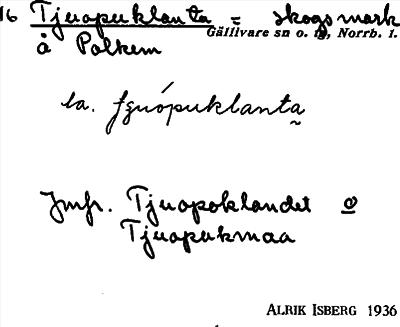 16 Tjuopuklanta = skogsmark
Gällivare sn o. tg, Norrb. l.
å Polkem
la. ʃʒuópuklanta̰
Jmfr. Tjuopoklandet o
Tjuopukmaa
ALRIK ISBERG 1936